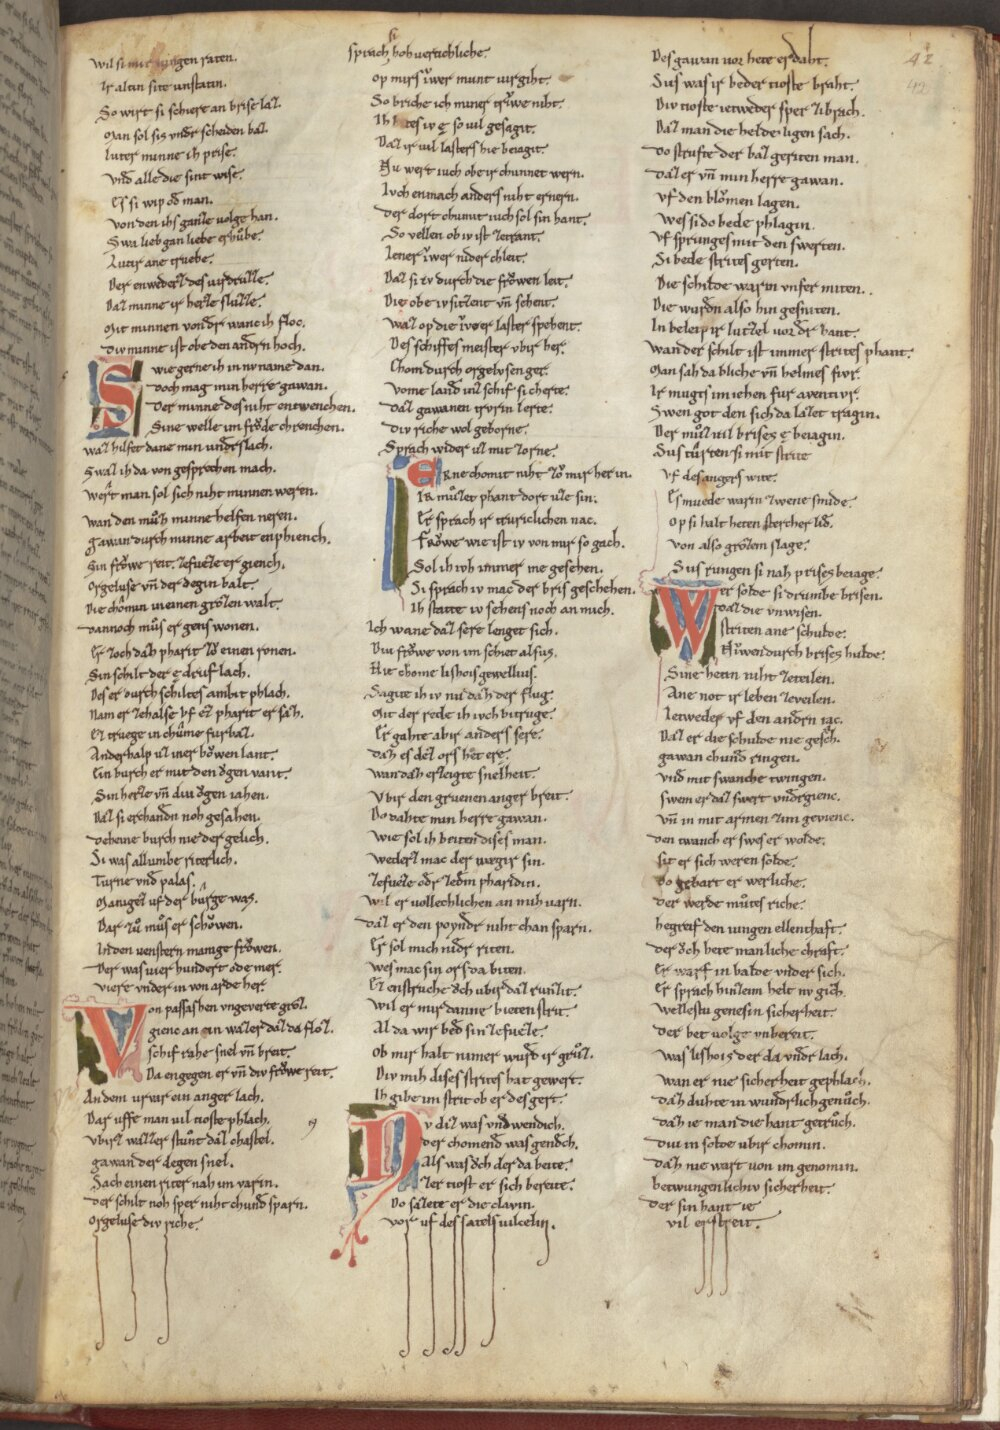 wil si mir mugen raten.
ir altin site unstatin.
So wirt si schiere an brise laz.
Man sol sis vnder scheiden baz.
luter minne ih prise.
vnd alle die sint wise.
Er si wip od man.
von den ihs ganze volge han.
Swa lieb gan liebe erhůbe.
Lutir ane truebe.
Der enwederz des virdruzze.
Daz minne ir herze sluzze.
Mit minnen von der wanc ih floc.
div minne ist obe den andern hoch.
Swie gerne ih in nv name dan.
doch mag min herre gawan.
Der minne des niht entwenchen.
Sine welle im frŏde chrenchen.
waz hilfet dane min vnderslach.
Swaz ih da von gesprechen mach.
wert man sol sich niht minnen weren.
wan den můz minne helfen neren.
Gawan durch minne arbeit enphiench.
Sin frŏwe reit. ze fuezze er giench.
Orgeluse vn̄ der degin balt.
Die chomin in einen grozen walt.
dannoch můs er gens wonen.
Er zoch daz pharit zŏ einen ronen.
Sin schilt der e druf lach.
Des er durch schiltes ambit phlach.
Nam er ze halse vf ez pharit er saz.
Ez truege in chume furbaz.
Anderhalp uz in er bŏwen lant.
Ein burch er mit den ŏgen vant.
Sin herze vn̄ div ŏgen iahen.
Daz si erchandn noh gesahen.
decheine burch nie der gelich.
Si was allumbe riterlich.
Turne vnd palas.
Manigez vf der bůrge was.
Dar zů můs er schŏwen.
In den venstern manige frŏwen.
Der was vier hundert ode mer.
viere vnder in von arde her.
Von passashen vngeverte groz.
gienc an ein wazer daz da floz.
schif rahe snel vn̄ breit.
Da engegen er vn̄ div frŏwe reit.
An dem urvar ein anger lach.
Dar uffe man vil tioste phlach.
vbirz wazzer stůnt daz chastel.
gawan der degen snel.
Sach einen riter nah im varin.
der schilt noh sper niht chund sparn.
Orgeluse div riche.
sprach hohverschliche.
op mirs iwer munt virgiht.
So briche ich miner triwe niht.
Ih tes iv e so vil gesagit.
Daz ir vil lasters hie beiagit.
Nu wert iuch obe ir chunnet wern.
Ivch enmach anders niht ernern.
Der dort chumit iuch sol sin hant.
So vellen ob iv ist zetrant.
Iener iwer nider chleit.
Daz si iv durch die frŏwen leit.
Die obe iv sitzent vn̄ sehent.
waz op die iwer laster spehent.
Des schiffes meister vbir her.
Chom durch orgelusen ger.
Vome land inz schif si cherte.
daz gawanen trvrin lerte.
div riche wol geborne.
Sprach wider uz mit zorne.
Ierne chomit niht zŏ mir her in.
Ir můzet phant dort uze sin.
Er sprach ir trurichlichen nac.
Frŏwe wie ist iv von mir so gach.
Sol ih ivh immer me gesehen.
Si sprach iv mac der bris geschehen.
Ih state iv sehens noch an mich.
Ich wane daz sere lenget sich.
Div frŏwe von im schiet alsus.
Hie chome lishois gewellius.
Sagite ih iv nu daz der flug.
Mit der rede ih ivch bitruge.
Er gahte abir anders sere.
daz es dez ors het ere.
wan daz erzeigte snelheit.
Vbir den gruenen anger breit.
Do dahte min herre gawan.
wie sol ih beiten dises man.
wederz mac der wegir sin.
ze fuezze oder zedem pharidin.
wil er vollechlichen an mih varn.
daz er den poynder niht chan sparn.
Er sol mich nider riten.
wes mac sin ors da biten.
Ez enstruche ŏch ubir daz runzit.
wil er mir danne bieten strit.
Al da wir bed sin ze fuezze.
ob mir halt nimer wurd ir grůz.
Div mih dises strites hat gewert.
Ih gibe im strit ob er des gert.
Nv diz was vndwendich.
der chomend was gendch.
Als was ŏch der da beite.
zer tiost er sich bereite.
Do sazete er die glavin.
vor vf des satels vilzelin.
Des gawan vor hete erdaht.
Sus was ir beder tioste braht.
Div tioste ietweder sper zibrach.
Daz man die helde ligen sach.
Do strufte der baz geriten man.
daz er vn̄ min herre gawan.
vf den blŏmen lagen.
wes si do bede phlagin.
Vf sprunges mit den swerten.
Si bede strites gerten.
Die schilde warin vnfer miten.
Die wurdn also hin gesniten.
In beleip ir lutzel vor der hant.
wan der schilt ist immer strites phant.
Man sah da bliche vn̄ helmes fivr.
Ir mugts im iehen fur aventivr.
Swen got den sich da lazet tragin.
Der můz vil brises e beiagin.
Sus tůrten si mit strite
vf des angers wite.
Es muede warin zwene smide.
Op si halt heten stercher lid.
von also grozem slage.
Sus rungen si nah prises beiage.
Wer solde si drumbe brisen.
daz die vnwisen.
striten ane schulde.
Niwen durch brises hulde.
Sine hetin niht zeteilen.
Ane not ir leben zeveilen.
Ietweder vf den andern iac.
Daz er die schulde nie gesach.
gawan chund ringen.
vnd mit swanche twingen.
swem er daz swert vnder gienc.
vn̄ in mit armen zim gevienc.
den twanch er swes er wolde.
sit er sich weren solde.
do gebart er werliche.
der werde můtes riche.
begreif den iungen ellenthaft.
der ŏch hete manliche chraft.
Er warf in balde vnder sich.
Er sprach hin zeim helt nv gich.
wellestu genesin sicherheit
der bet volge vnbereit.
was lishois der da vnder lach.
wan er nie sicherheit gephlach.
daz duhte in wundrlich genůch.
daz ie man die hant getrůch.
div in solde ubir chomin.
daz nie wart von im genomin.
betwungenlichiv sicherheit.
der sin hant ie
vil erstreit.
42